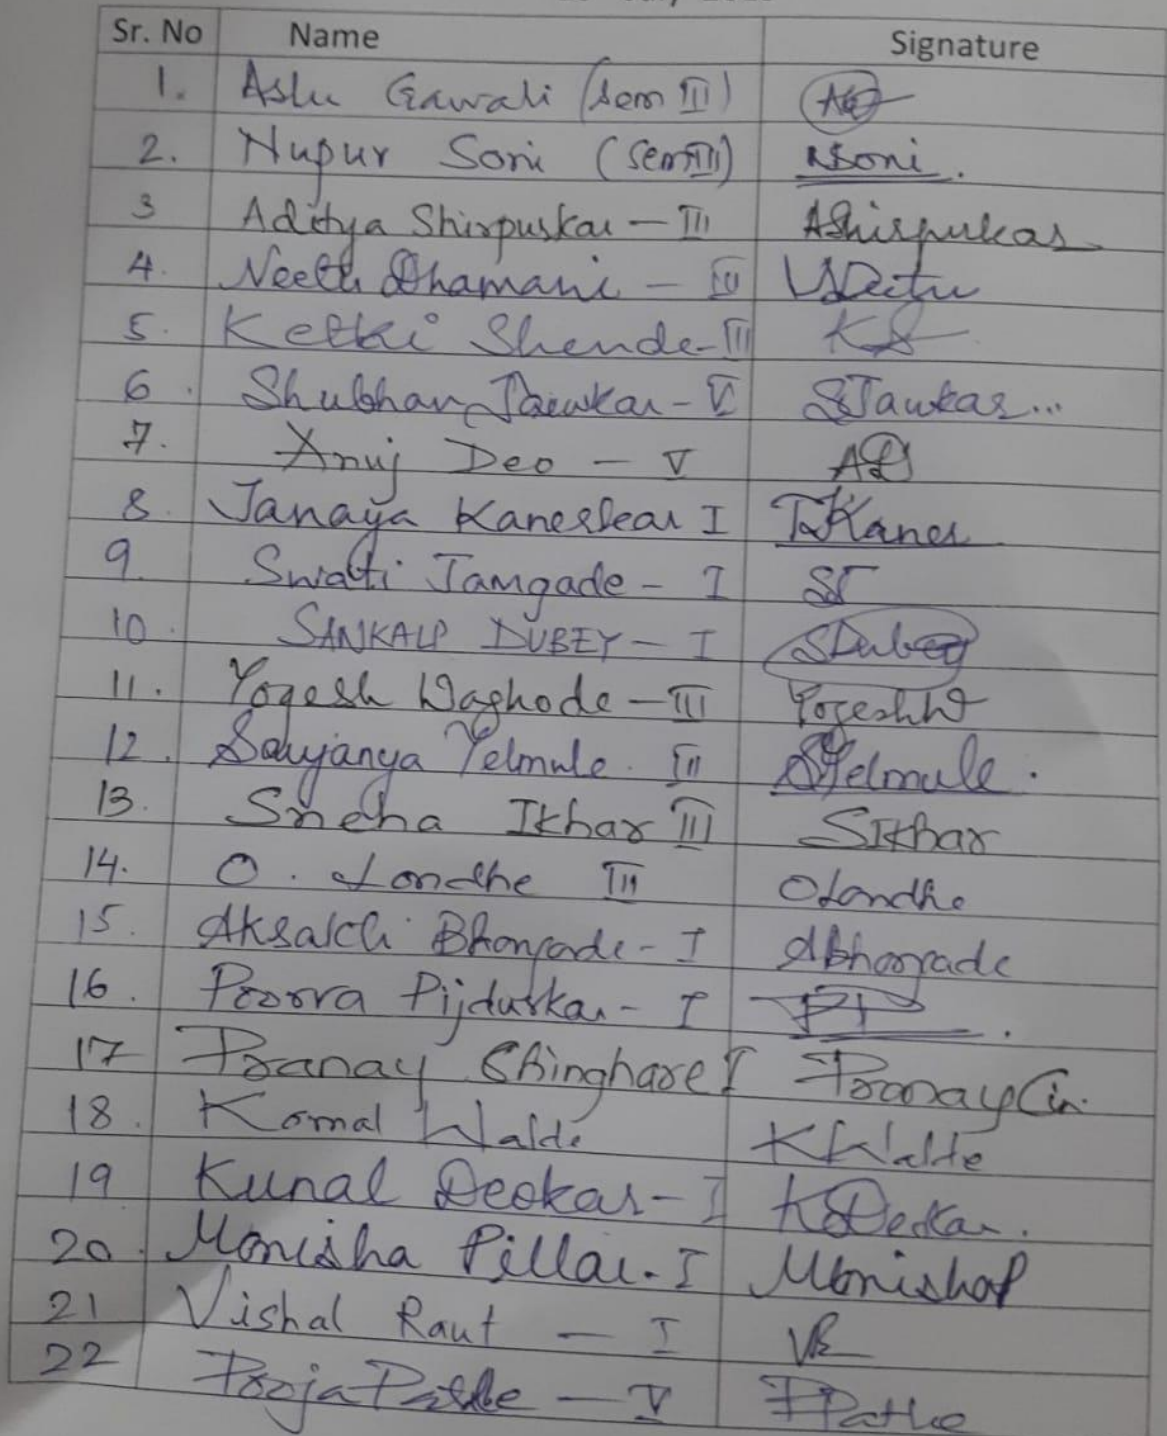 Sr. No Name Signature
1. Ashu Gawali (Sem III)
2. Nupur Soni (Sem III) NSoni.
3 Aditya Shirpuskar - III AShirpukar
4. Neetu Dhamani - III
5. Ketki Shende - III KS
6. Shubhan Jaewkar - V SJawkar...
7. Anuj Deo - V AD
8. Janaya Kaneskar I
9. Swati Jamgade - I SJ
10. SANKALP DUBEY - I SDubey
11. Yogesh Waghode - III YogeshW
12. Saujanya Yelmule. III SYelmule.
13. Sneha Ikhar III SIkhar
14. O. Londhe III OLondhe
15. Aksakh Bhoyade - I ABhoyade
16. Poorva Pijdurkar - I PP.
17 Pranay Chinghare I Pranay Cin.
18. Komal Walde KWalde
19 Kunal Deokar - I KDeokar.
20. Monisha Pillai. I MonishaP
21 Vishal Raut - I VR
22 Pooja Pathe - V PPathe